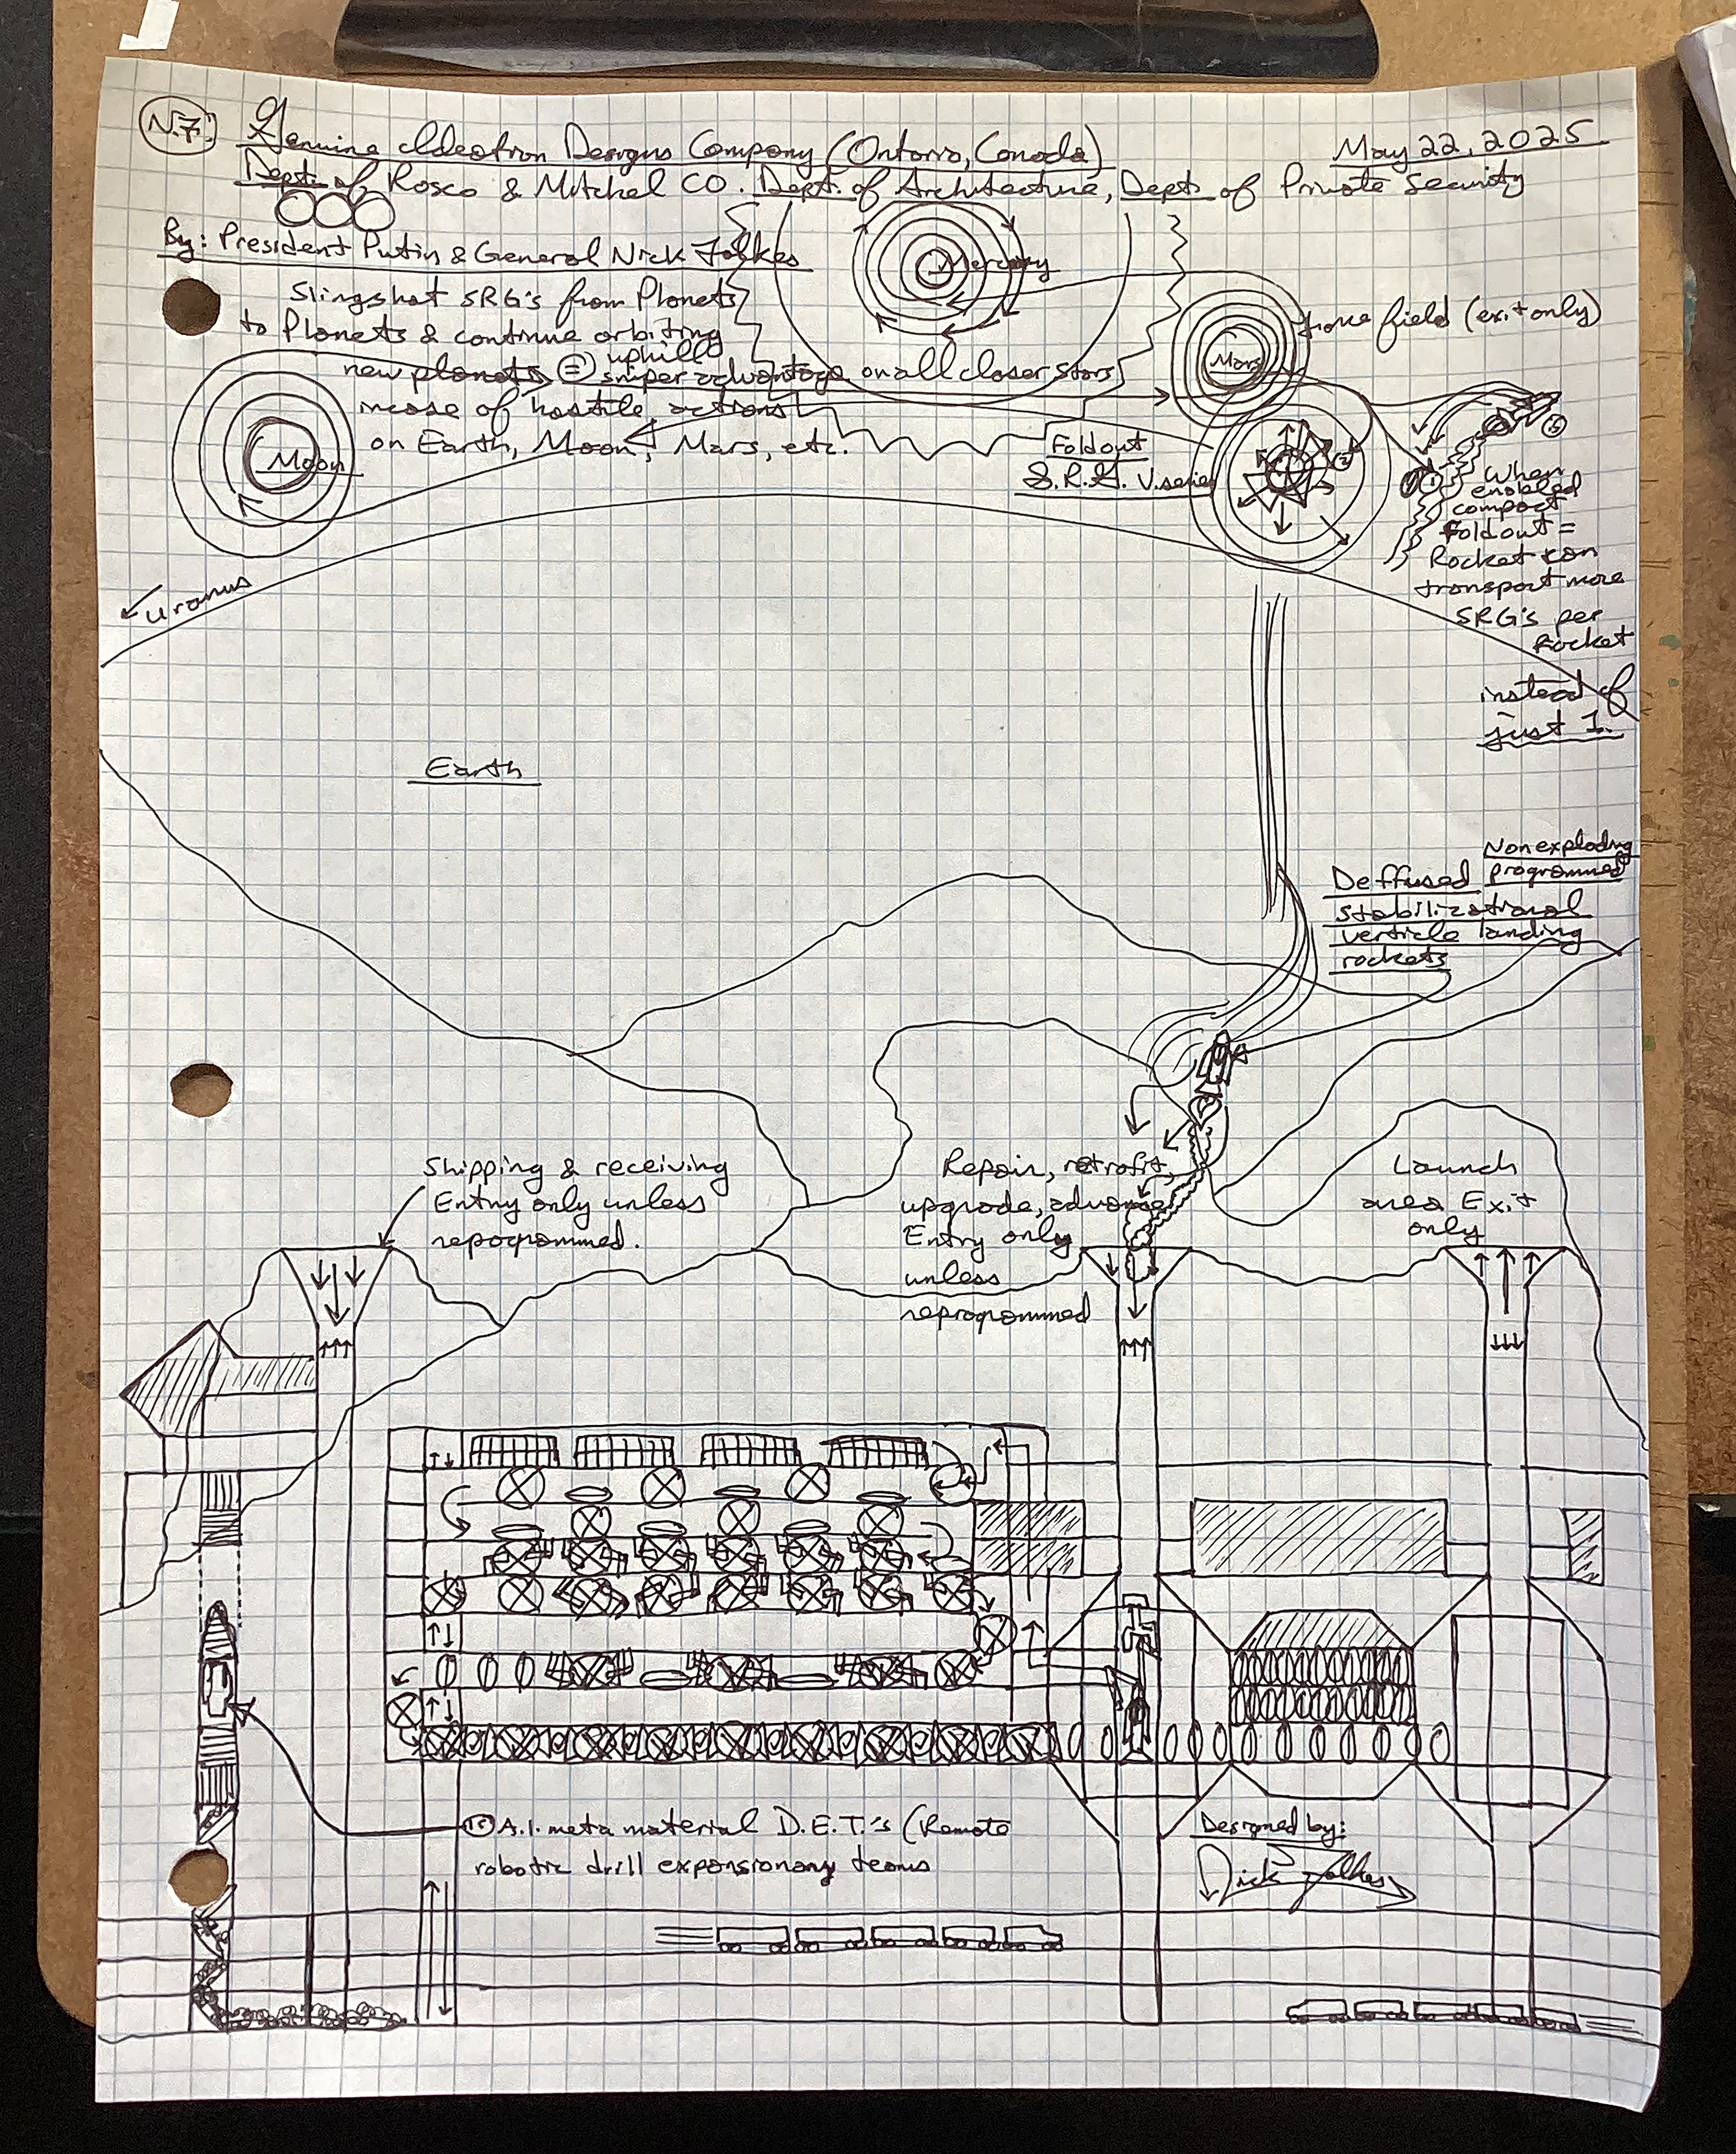 N.7.
Genuine Ideatron Designs Company (Ontario, Canada)
May 22, 2025
Dept. of Rosco & Mitchel CO. Dept. of Architecture, Dept. of Private Security
By: President Putin & General Nick
Slingshot SRG's from Planets
to Planets & continue orbiting
new planets = uphill
sniper advantage on all closer stars
incase of hostile actions
on Earth, Moon, Mars, etc.
Mercury
Mars
force field (exit only)
Moon
Uranus
Foldout
S.R.G. V.series
When
enabled
compact
Foldout =
Rocket can
transport more
SRG's per
Rocket
instead of
just 1.
Earth
Non exploding
programmed
Deffused
stabilizational
verticle landing
rockets
Shipping & receiving
Entry only unless
reprogrammed.
Repair, retrofit,
upgrade, advance
Entry only
unless
reprogrammed
Launch
area Exit
only
A.I. meta material D.E.T.'s (Remote
robotic drill expansionary teams
Designed by: